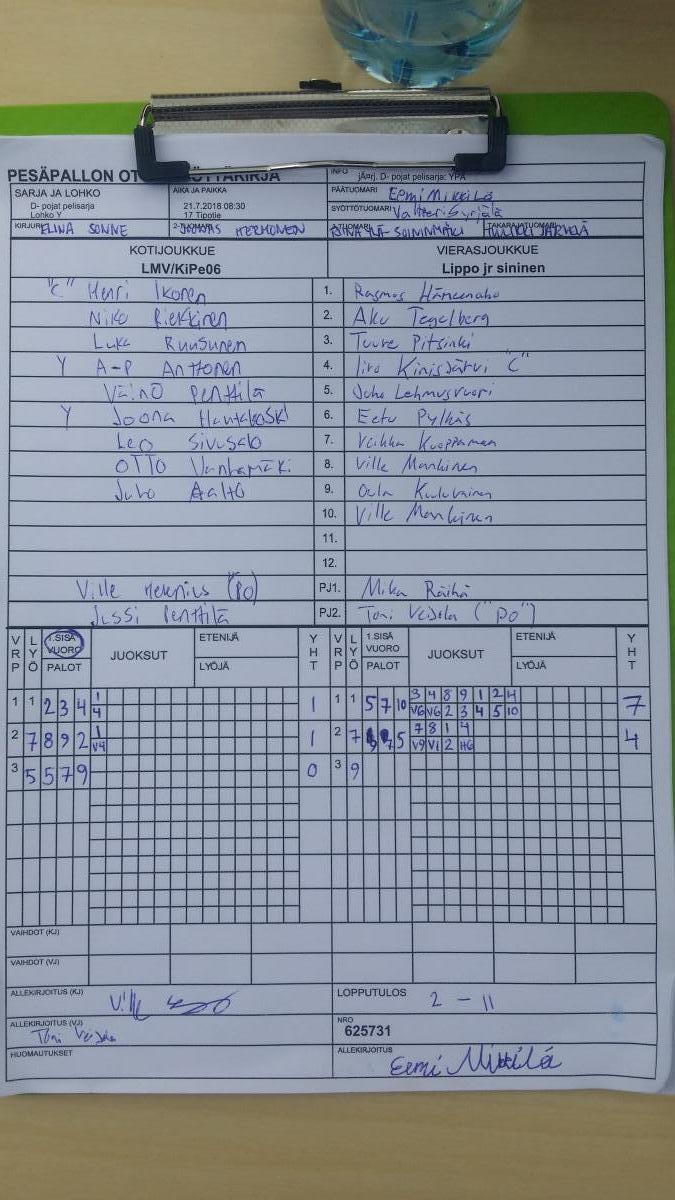 PESÄPALLON OT
INFO jÄrj. D- pojat pelisarja: YPA
SARJA JA LOHKO
D- pojat pelisarja
Lohko Y
AIKA JA PAIKKA
21.7.2018 08:30
17 Tipotie
PÄÄTUOMARI Eemi Mikkilä
SYÖTTÖTUOMARI Valtteri Syrjälä
KIRJURI ELINA SONNE
KOTIJOUKKUE
LMV/KiPe06
VIERASJOUKKUE
Lippo jr sininen
"C" Henri Ikonen 1.
Niko Riekkinen 2. Aku Tegelberg
Luka Ruusunen 3. Tuure Pitsinki
Y A-P Anttonen 4. "C"
Väinö Penttilä 5. Juho Lehmusvuori
Y Joona 6. Eetu Pylkäs
Leo Sivusalo 7. Veikka
OTTO 8. Ville Mankinen
Juho Aalto 9.
10. Ville Mankinen
11.
12.
Ville Helenius (PO) PJ1. Mika Räihä
Jussi Penttilä PJ2. Toni Veijola ("PO")
VRP LYÖ 1.SISÄ VUORO PALOT JUOKSUT ETENIJÄ LYÖJÄ YHT VRP LYÖ 1.SISÄ VUORO PALOT JUOKSUT ETENIJÄ LYÖJÄ YHT
1 1 2 3 4 1 4 1 1 1 5 7 10 3 4 8 9 1 2 4 7
V6 V6 2 3 4 5 10
2 7 8 9 2 1 V4 1 2 7 5 7 8 1 4 4
V9 V1 2 H6
3 5 5 7 9 0 3 9
VAIHDOT (KJ)
VAIHDOT (VJ)
ALLEKIRJOITUS (KJ) Ville
LOPPUTULOS 2 - 11
ALLEKIRJOITUS (VJ) Toni Veijola
NRO
625731
HUOMAUTUKSET
ALLEKIRJOITUS Eemi Mikkilä